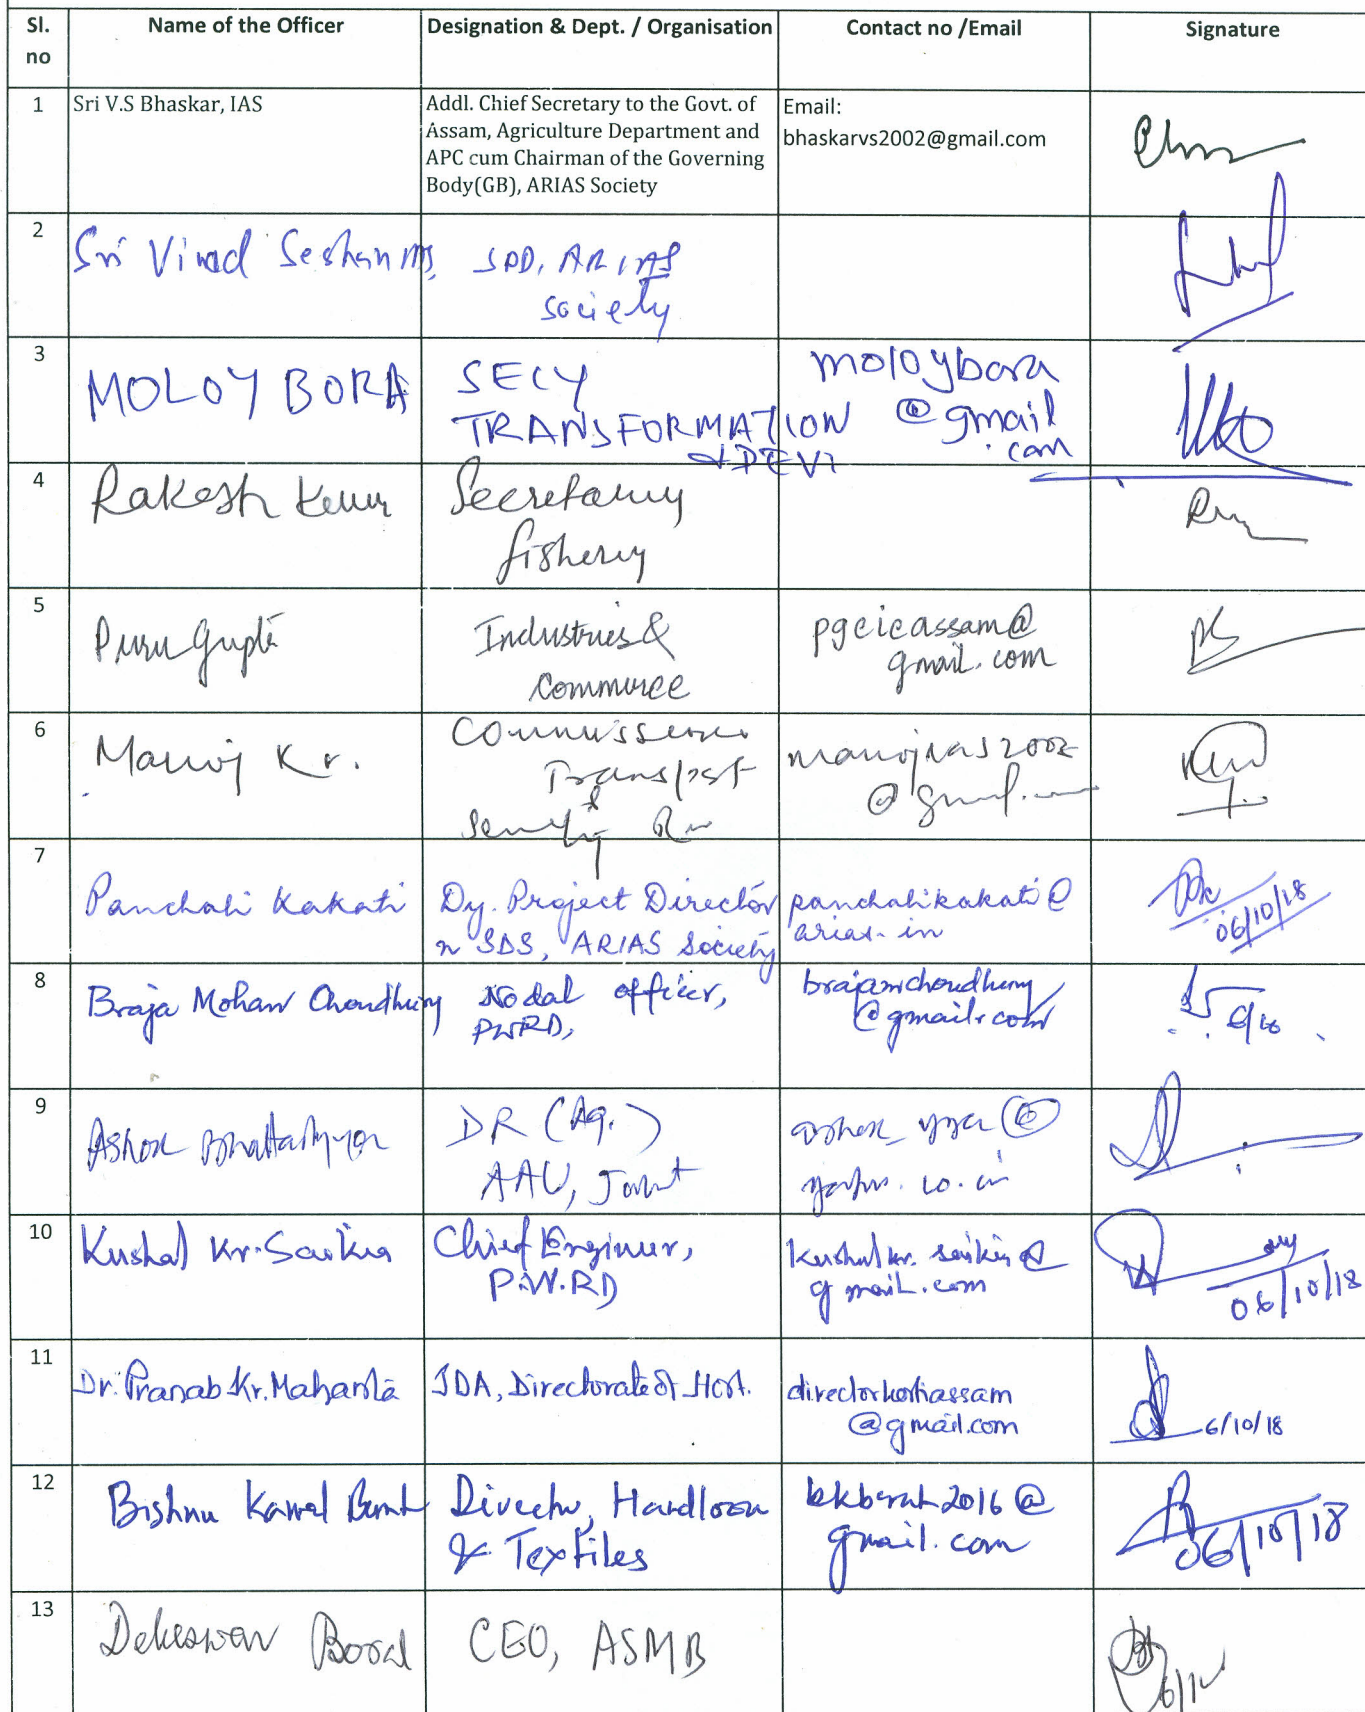 Sl. no Name of the Officer Designation & Dept. / Organisation Contact no /Email Signature
1 Sri V.S Bhaskar, IAS
Addl. Chief Secretary to the Govt. of
Assam, Agriculture Department and
APC cum Chairman of the Governing
Body(GB), ARIAS Society
Email:
bhaskarvs2002@gmail.com
2 Sri Vinod Seshan
SPD, ARIAS
Society
3 MOLOY BORA
SECY
TRANSFORMATION
& DEVT
moloybora
@gmail
.com
4 Rakesh Kumar
Secretary
fishery
5 Puru Gupta
Industries &
Commerce
pgcicassam@
gmail.com
6 Manoj Kr.
Commissioner
Transport
&
manojias2002
@gmail.com
7 Panchali Kakati
Dy. Project Director
n SDS, ARIAS Society
panchalikakati@
arias.in
06/10/18
8 Braja Mohan Choudhury
Nodal officer,
PWRD,
brajamchoudhury
@gmail.com
6/10
9 Ashok Bhattacharyya
DR (Ag.)
AAU, Jorhat
10 Kushal Kr. Saikia
Chief Engineer,
P.W.RD
kushalkr.saikia@
gmail.com
06/10/18
11 Dr. Pranab Kr. Mahanta
JDA, Directorate of Hort.
directorhortiassam
@gmail.com
6/10/18
12 Bishnu Kamal Borah
Director, Handloom
& Textiles
bkborah2016@
gmail.com
06/10/18
13
CEO, ASMB